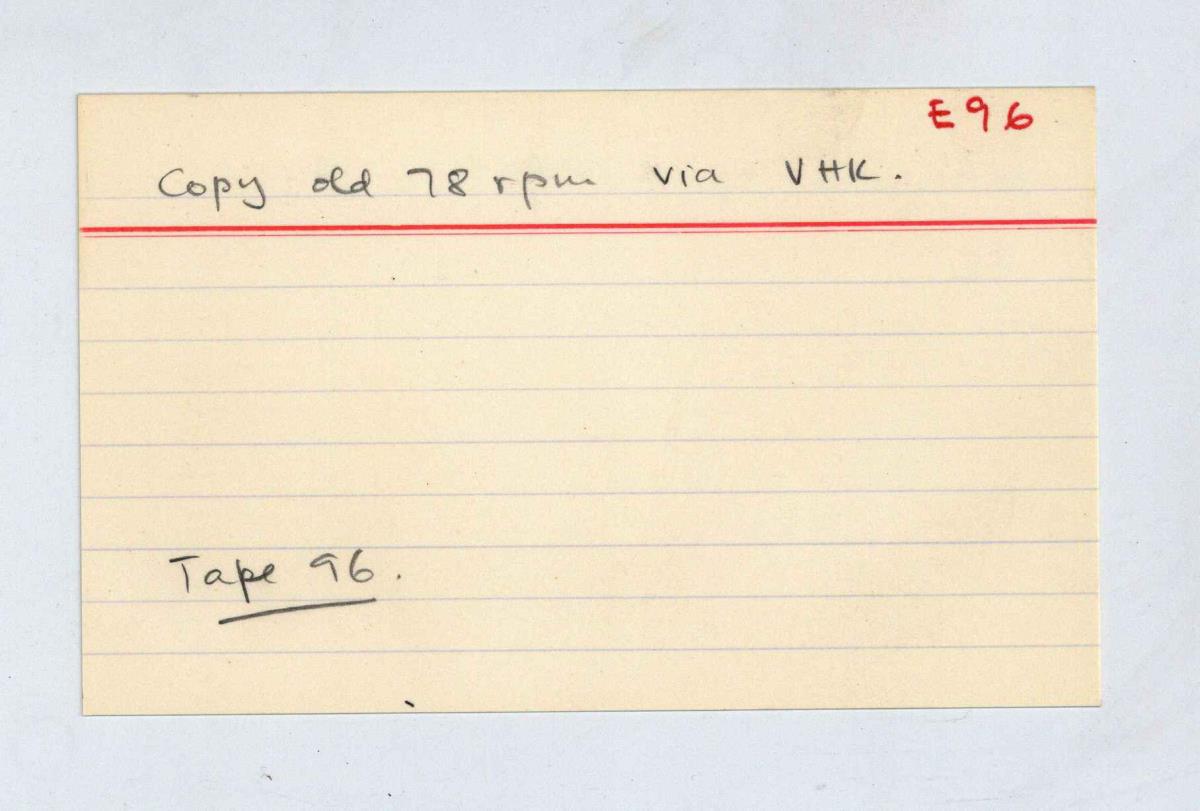 E96
Copy old 78 rpm via VHK.
Tape 96.